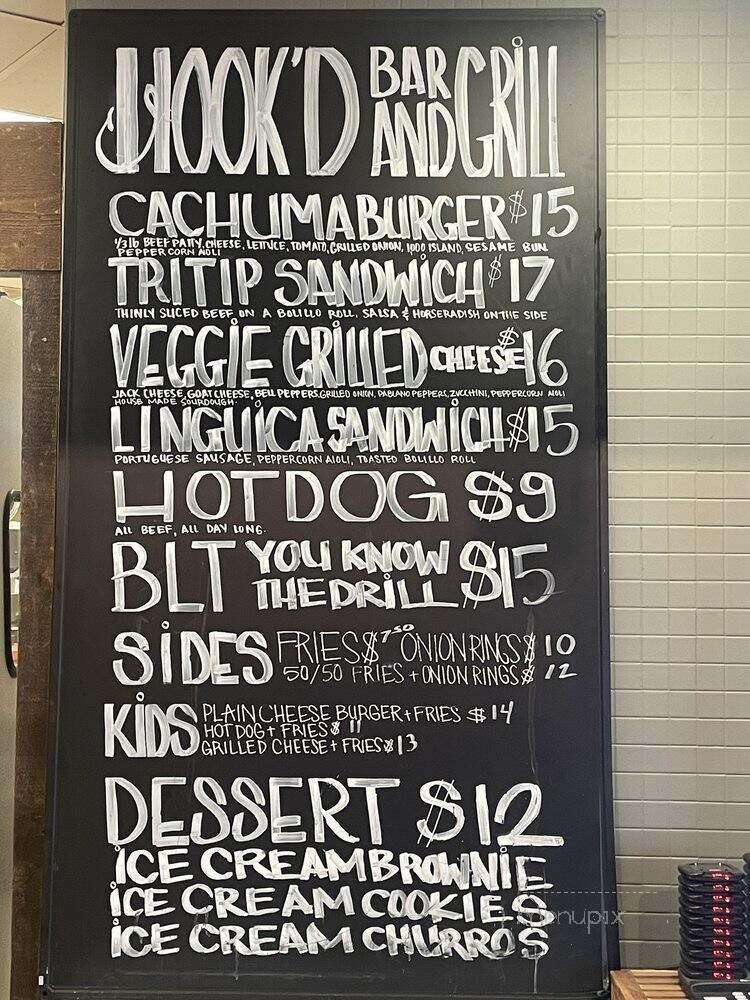 HOOK'D BAR AND GRILL
CACHUMA BURGER $15
1/3 lb BEEF PATTY, CHEESE, LETTUCE, TOMATO, GRILLED ONION, 1000 ISLAND, SESAME BUN
PEPPERCORN AIOLI
TRITIP SANDWICH $17
THINLY SLICED BEEF ON A BOLILLO ROLL, SALSA & HORSERADISH ON THE SIDE
VEGGIE GRILLED CHEESE $16
JACK CHEESE, GOAT CHEESE, BELL PEPPERS, GRILLED ONION, PABLANO PEPPERS, ZUCCHINI, PEPPERCORN AIOLI
HOUSE MADE SOURDOUGH.
LINGUICA SANDWICH $15
PORTUGUESE SAUSAGE, PEPPERCORN AIOLI, TOASTED BOLILLO ROLL
HOT DOG $9
ALL BEEF, ALL DAY LONG.
BLT YOU KNOW THE DRILL $15
SIDES FRIES $7.50 ONION RINGS $10
50/50 FRIES + ONION RINGS $12
KIDS PLAIN CHEESE BURGER + FRIES $14
HOT DOG + FRIES $11
GRILLED CHEESE + FRIES $13
DESSERT $12
ICE CREAM BROWNIE
ICE CREAM COOKIES
ICE CREAM CHURROS
menupix